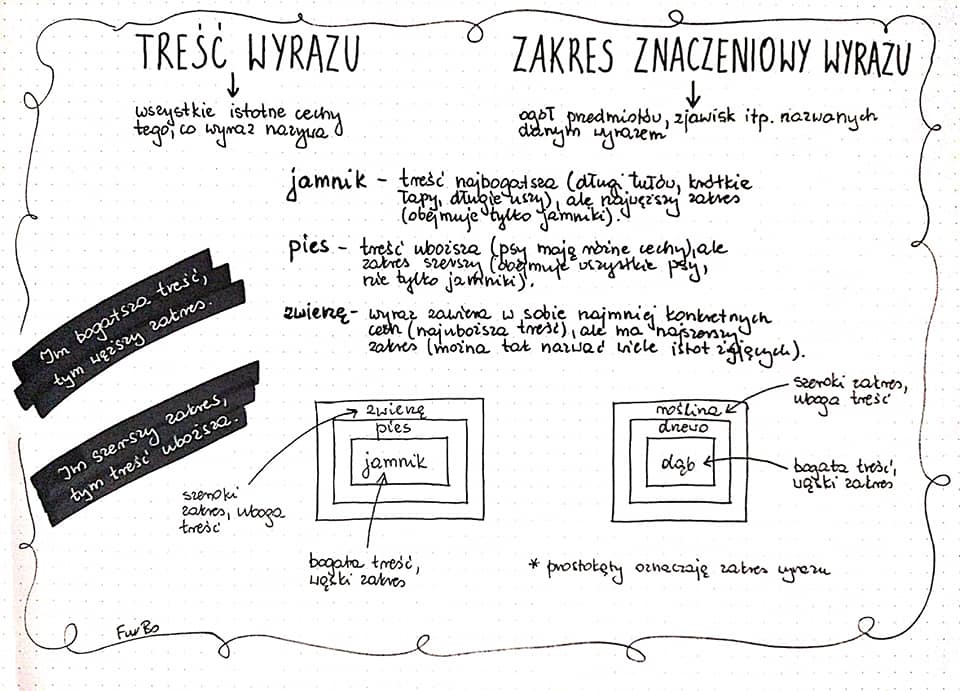 TREŚĆ WYRAZU
wszystkie istotne cechy
tego, co wyraz nazywa
ZAKRES ZNACZENIOWY WYRAZU
ogół przedmiotów, zjawisk itp. nazwanych
danym wyrazem
jamnik – treść najbogatsza (długi tułów, krótkie
łapy, długie uszy), ale najwęższy zakres
(obejmuje tylko jamniki).
pies – treść uboższa (psy mają różne cechy), ale
zakres szerszy (obejmuje wszystkie psy,
nie tylko jamniki).
zwierzę – wyraz zawiera w sobie najmniej konkretnych
cech (najuboższa treść), ale ma najszerszy
zakres (można tak nazwać wiele istot żyjących).
Im bogatsza treść,
tym węższy zakres.
Im szerszy zakres,
tym treść uboższa.
zwierzę
pies
jamnik
szeroki
zakres, uboga
treść
bogata treść,
wąski zakres
roślina
drzewo
dąb
szeroki zakres,
uboga treść
bogata treść,
wąski zakres
* prostokąty oznaczają zakres wyrazu
FurBo